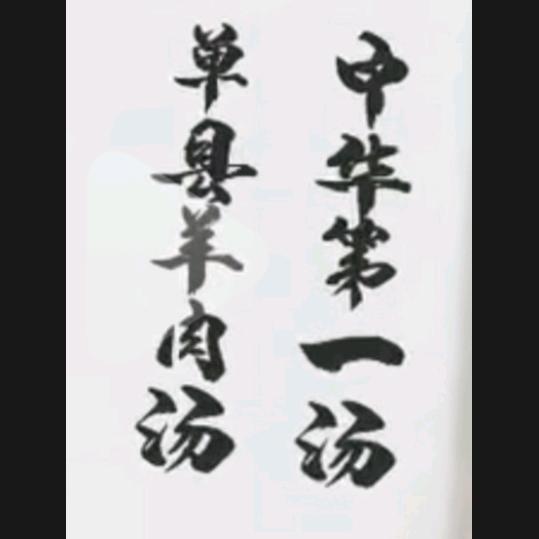 中华第一汤
单县羊肉汤